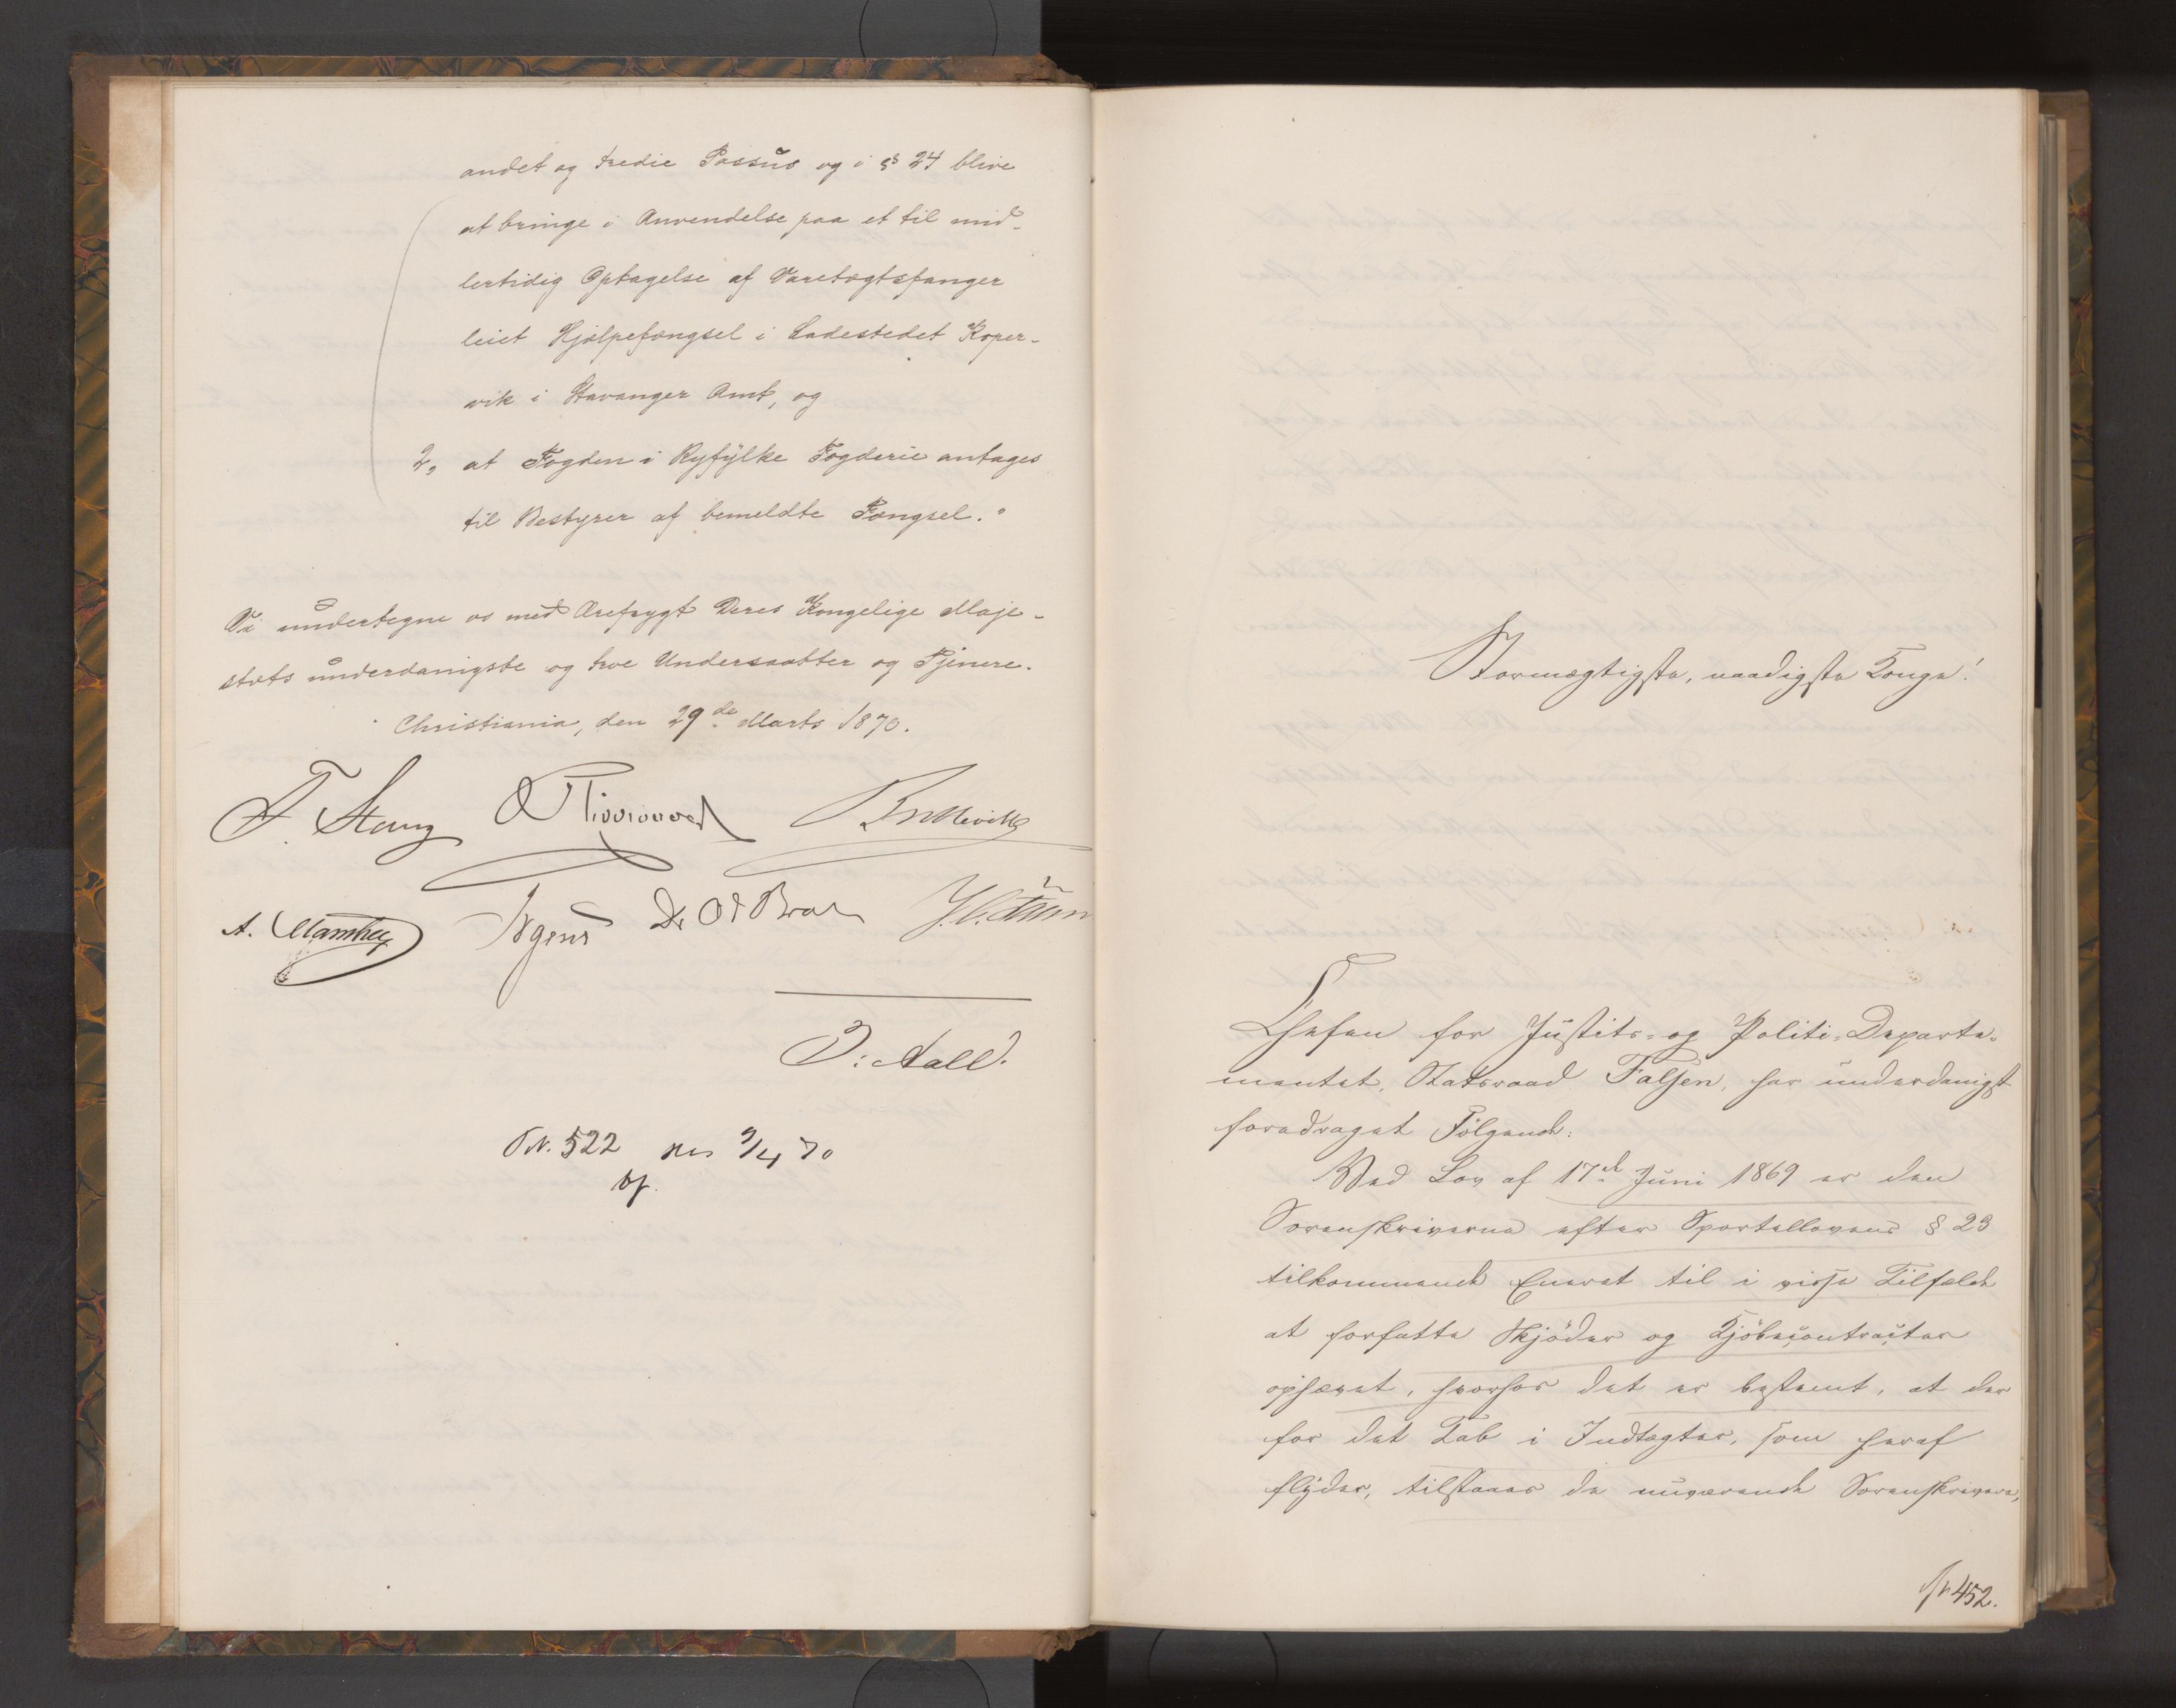 andet og tredie Passus og i § 24 blive
at bringe i Anvendelse paa et til mid-
lertidig Optagelse af Varetægtsfanger
leiet Hjælpefængsel i Ladestedet Koper-
vik i Stavanger Amt, og
2, at Fogden i Ryfylke Fogderie antages
til Bestyrer af bemeldte Fængsel."
Vi undertegne os med Ærefrygt Deres Kongelige Maje-
stæts underdanigste og troe Undersaatter og Tjenere.
Christiania, den 29de Marts 1870.
F. Stang
A. Manthey Irgens
J: Aall.
N. 522 9/4 70
Stormægtigste, naadigste Konge!
Chefen for Justits- og Politi-Departe-
mentet, Statsraad Falsen, har underdanigst
foredraget Følgende:
Ved Lov af 17de Juni 1869 er den
Sorenskriverne efter Sportellovens § 23
tilkommende Eneret til i visse Tilfælde
at forfatte Skjøder og Kjøbecontracter
ophævet, hvorhos det er bestemt, at der
for det Tab i Indtægter, som heraf
flyder, tilstaaes de nuværende Sorenskrivere,
452.